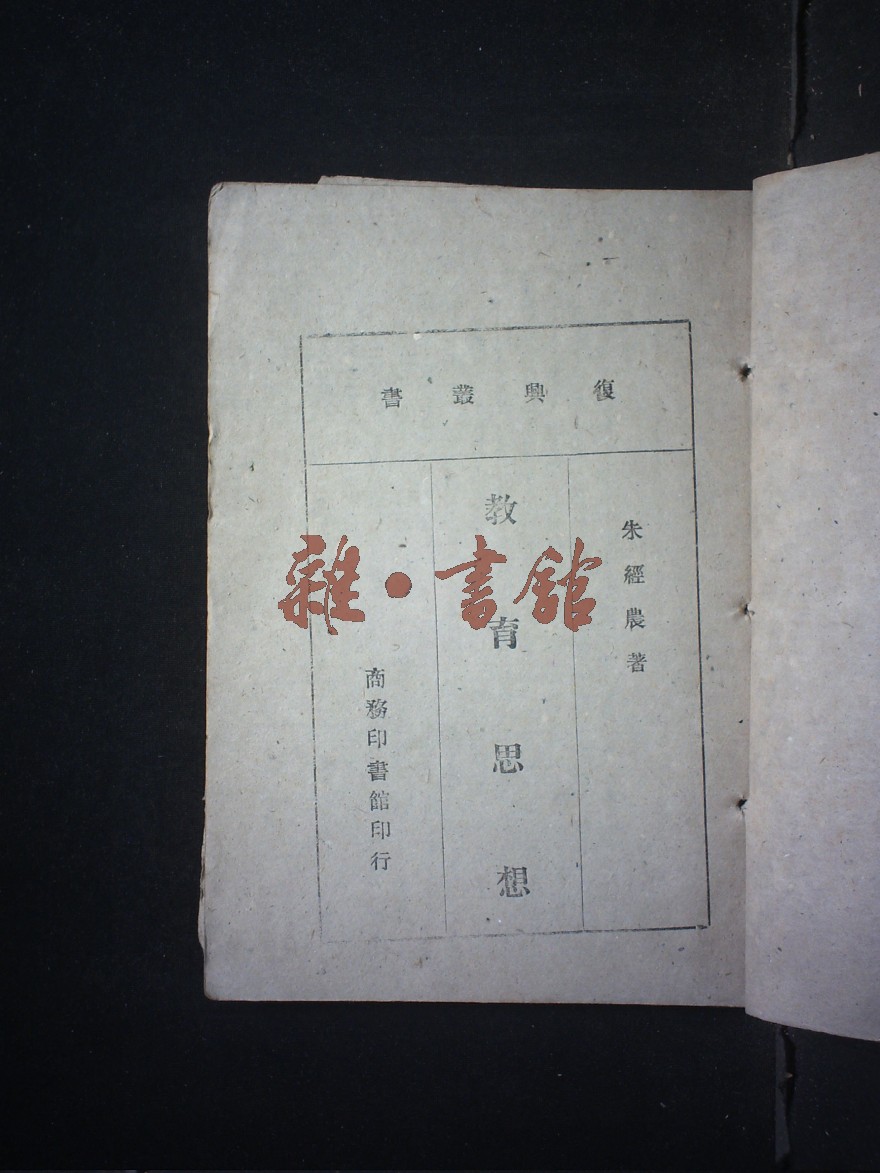 復興叢書
朱經農著
教育思想
商務印書館印行
雜·書館